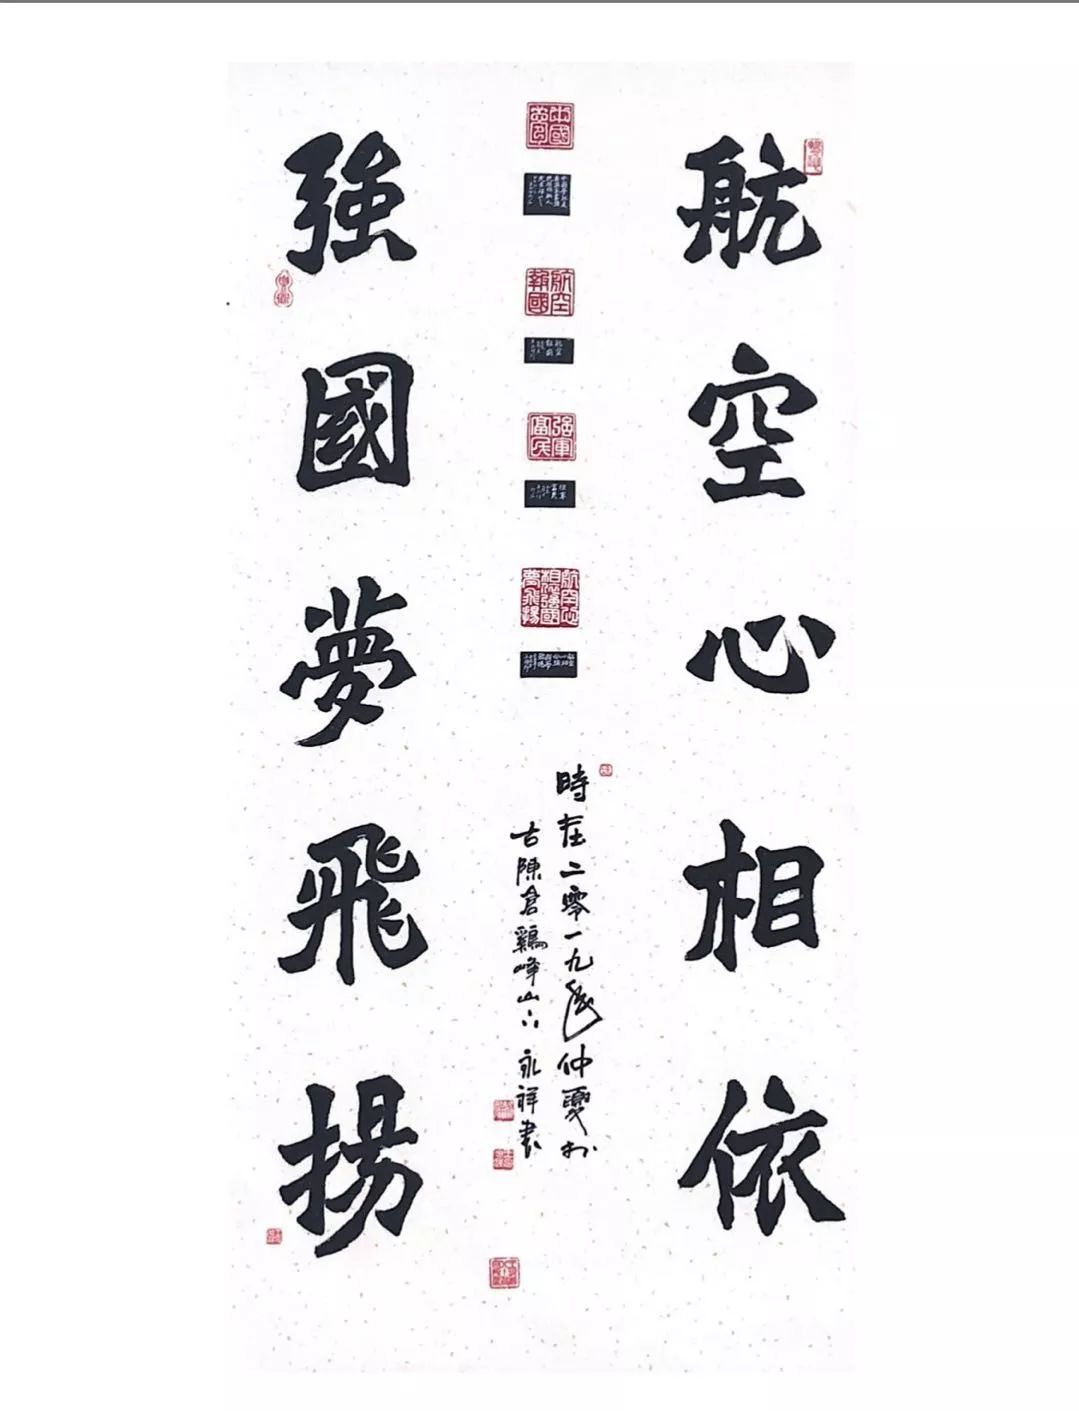 航空心相依
強國夢飛揚
中國夢
航空報國
强軍富民
航空心相依強國夢飛揚
時在二零一九年仲夏於
古陳倉鷄峰山下永祥書